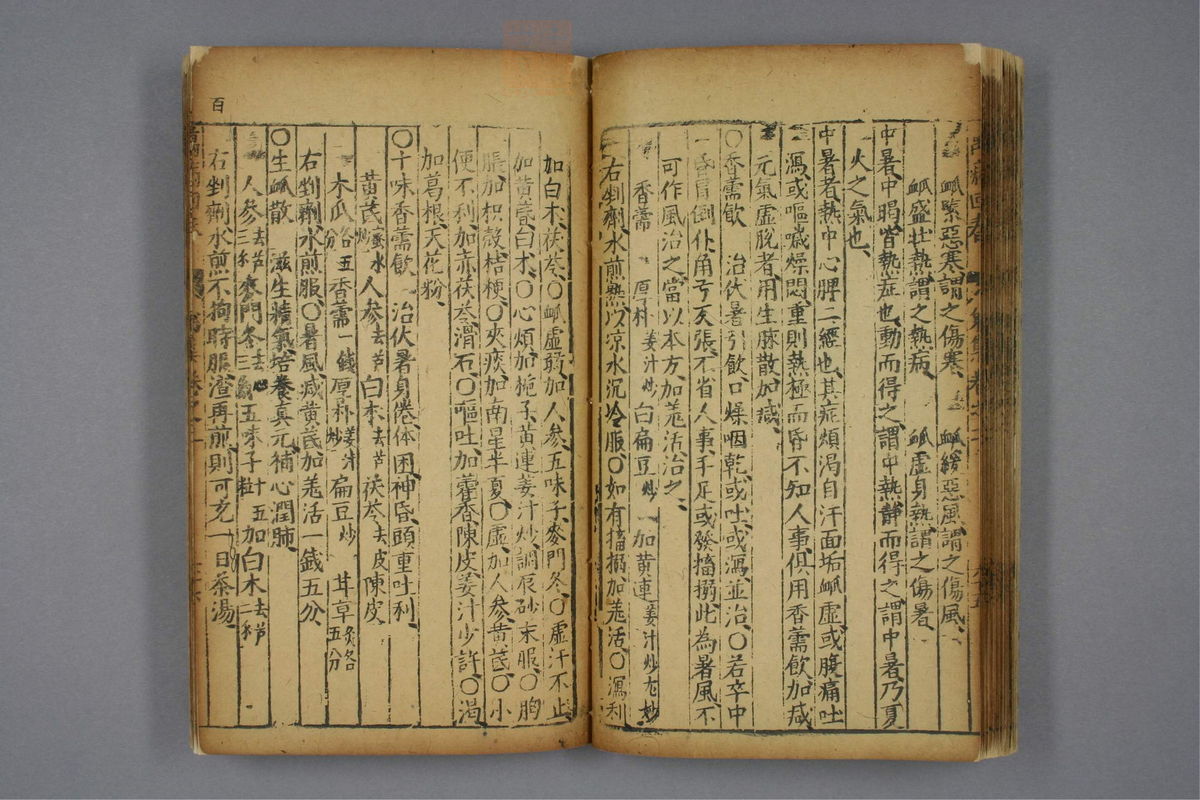 脉緊惡寒謂之傷寒 脉緩惡風謂之傷風
脉盛壮熱謂之熱病 脉虚身熱謂之傷暑
中暑中暍皆熱症也動而得之謂中熱静而得之謂中暑乃夏
火之氣也
中暑者熱中心脾二經也其症煩渴自汗面垢脉虚或腹痛吐
瀉或嘔噦燥悶重則熱極而昏不知人事俱用香薷飲加减
元氣虚脫者用生脉散加减
〇香薷飲 治伏暑引飲口燥咽乾或吐或瀉並治〇若卒中
一昏冒倒仆角弓反張不省人事手足或發搐搦此為暑風不
可作風治之當以本方加羗活治之
香薷 厚朴姜汁炒 白扁豆炒 加黄連姜汁炒
右剉劑水煎熟以凉水沉冷服〇如有搐搦加羗活〇瀉利
加白术茯苓〇脉虚弱加人參五味子麥門冬〇虚汗不止
加黄芪白术〇心煩加梔子黄連姜汁炒調辰砂末服〇胸
脹加枳殼桔梗〇夾痰加南星半夏〇虚加人參黄芪〇小
便不利加赤茯苓滑石〇嘔吐加藿香陳皮姜汁少許〇渴
加葛根天花粉
〇十味香薷飲 治伏暑身倦体困神昏頭重吐利
黄芪蜜水炒 人參去芦 白术去芦 茯苓去皮 陳皮
木瓜各五分 香薷一錢 厚朴姜汁炒 扁豆炒 甘草炙各五分
右剉劑水煎服〇暑風减黄芪加羗活一錢五分
〇生脉散 滋生精氣培養真元補心潤肺
人參去芦三錢 麥門冬去心三錢 五味子十五粒 加白术去芦二錢
右剉劑水煎不拘時服渣再煎則可充一日茶湯
百